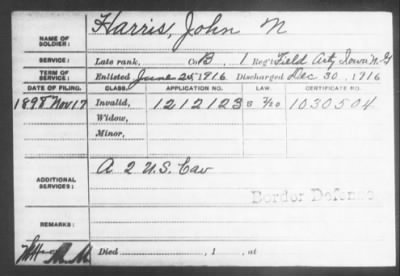 NAME OF SOLDIER: Harris, John N
SERVICE: Late rank, Co B, 1 Reg't Field Arty Iowa N.G
TERM OF SERVICE: Enlisted June 25, 1916 Discharged Dec 30, 1916
DATE OF FILING. CLASS. APPLICATION NO. LAW. CERTIFICATE NO.
1898 Nov 17 Invalid, 1212123 G 7/20 1030504
Widow,
Minor,
ADDITIONAL SERVICES: A 2 U.S. Cav
Border Defense
REMARKS:
Died , 1 , at